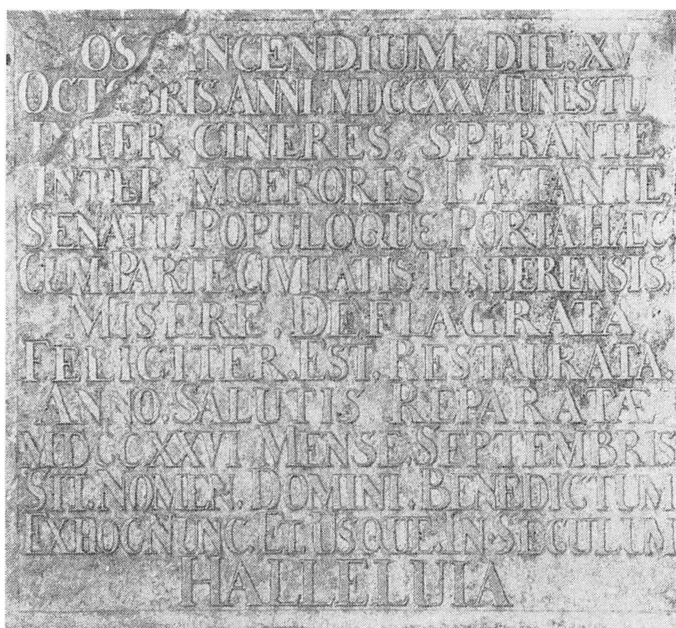 OS NCENDIUM. DIE. XV
OCTOBRIS. ANNI. MDCCXXV FUNESTU
INTER. CINERES. SPERANTE.
INTER MOERORES LÆTANTE
SENATU POPULOQUE. PORTA HÆC
CUM. PARTE. CIVITATIS TUNDERENSIS.
MISERE. DEFLAGRATA
FELICITER. EST. RESTAURATA.
ANNO. SALUTIS REPARATÆ
MDCCXXVI MENSE SEPTEMBRIS
SIT. NOMEN. DOMINI. BENEDICTUM
EXHOCNUNC. ET. USQUE. IN. SECULUM
HALLELUIA